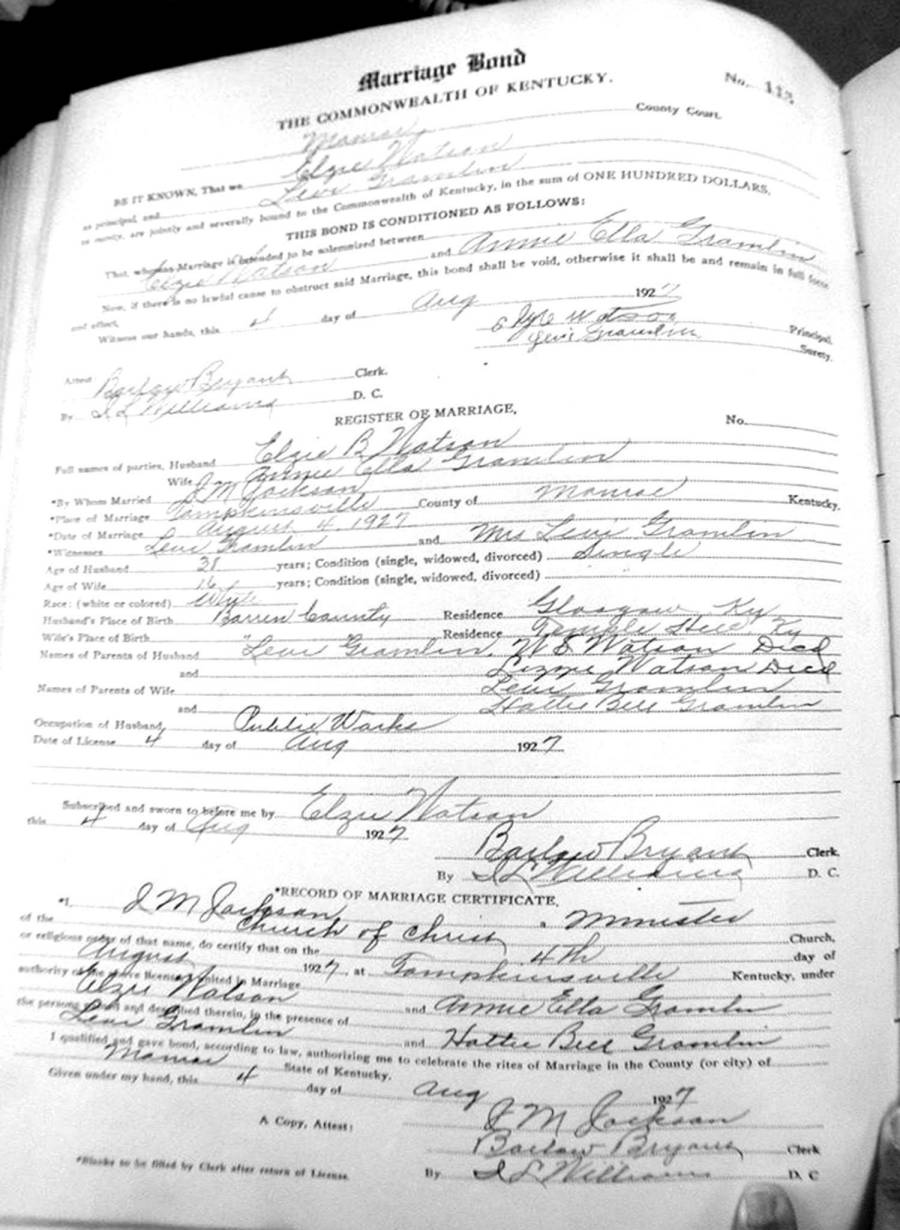 Marriage Bond
No. 113
THE COMMONWEALTH OF KENTUCKY.
Monroe County Court.
BE IT KNOWN, That we Elzie Watson
as principal, and Levi Gramlin
as surety, are jointly and severally bound to the Commonwealth of Kentucky, in the sum of ONE HUNDRED DOLLARS.
THIS BOND IS CONDITIONED AS FOLLOWS:
That, whereas Marriage is intended to be solemnized between
Elzie Watson and Annie Ella Gramlin
Now, if there is no lawful cause to obstruct said Marriage, this bond shall be void, otherwise it shall be and remain in full force
and effect.
Witness our hands, this 4 day of Aug 1927
Elzie Watson Principal.
Levi Gramlin Surety.
Attest Barlow Bryant Clerk.
By I L Williams D. C.
REGISTER OF MARRIAGE,
No.
Full names of parties, Husband Elzie B Watson
Wife Annie Ella Gramlin
*By Whom Married J M Jackson
*Place of Marriage Tompkinsville County of Monroe Kentucky.
*Date of Marriage August 4, 1927
*Witnesses Levi Gramlin and Mrs Levi Gramlin
Age of Husband 31 years; Condition (single, widowed, divorced) Single
Age of Wife 16 years; Condition (single, widowed, divorced)
Race: (white or colored) White
Husband's Place of Birth Barren County Residence Glasgow Ky
Wife's Place of Birth " Residence Temple Hill, Ky
Names of Parents of Husband Levi Gramlin. W B Watson Decd
and Lizzie Watson Decd
Names of Parents of Wife Levi Gramlin
and Hattie Bell Gramlin
Occupation of Husband Public Works
Date of License 4 day of Aug 1927
Subscribed and sworn to before me by Elzie Watson
this 4 day of Aug 1927
Barlow Bryant Clerk.
By I L Williams D. C.
*RECORD OF MARRIAGE CERTIFICATE,
*I, J M Jackson, a Minister
of the Church of Christ Church,
or religious order of that name, do certify that on the 4th day of
August 1927, at Tompkinsville Kentucky, under
authority of the above license, united in Marriage
Elzie Watson and Annie Ella Gramlin
the persons named and described therein, in the presence of
Levi Gramlin and Hattie Bell Gramlin
I qualified and gave bond, according to law, authorizing me to celebrate the rites of Marriage in the County (or city) of
Monroe State of Kentucky.
Given under my hand, this 4 day of Aug 1927
J M Jackson
A Copy, Attest: Barlow Bryant Clerk
By I L Williams D. C
*Blanks to be filled by Clerk after return of License.